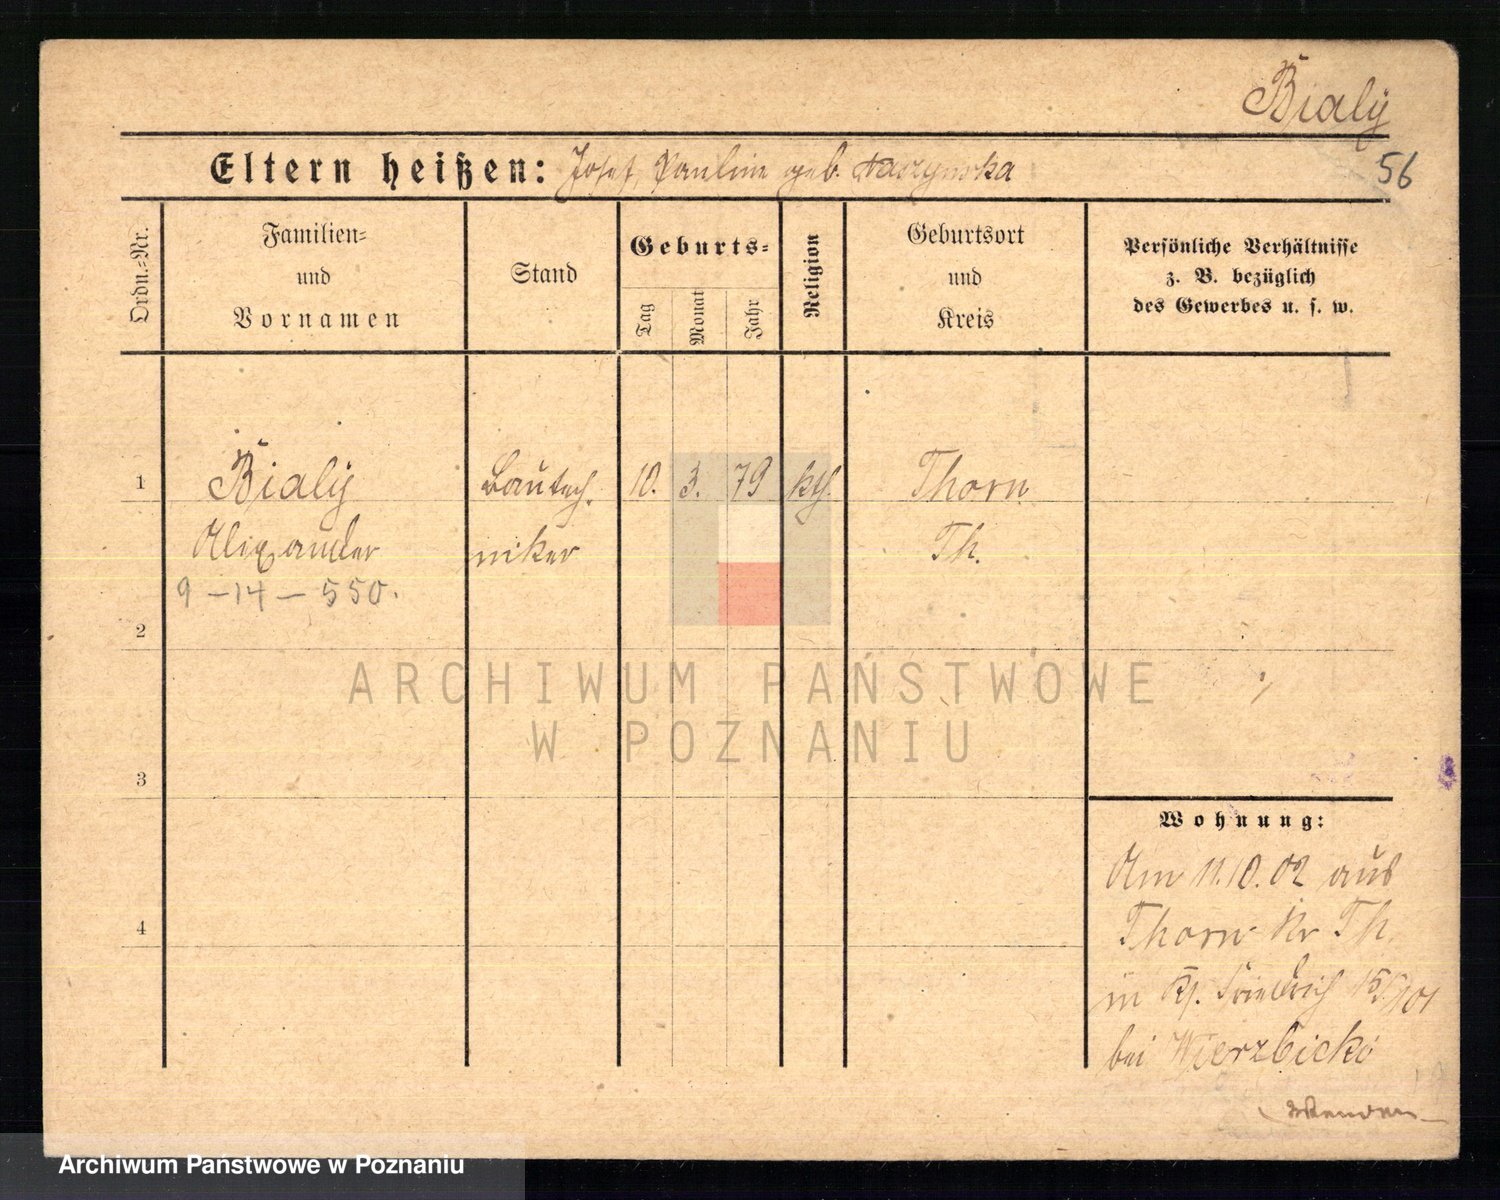 Bialÿ
Eltern heißen: Josef, Pauline geb. Daszynska
56
Ordn.-Nr.
Familien-
und
Vornamen
Stand
Geburts-
Tag
Monat
Jahr
Religion
Geburtsort
und
Kreis
Persönliche Verhältnisse
z. B. bezüglich
des Gewerbes u. s. w.
1
Bialÿ
Bautech.
10. 3. 79
kth.
Thorn
Alexander
niker
Th.
9 – 14 – 550.
2
3
4
Wohnung:
Am 11.10.02 aus
Thorn Kr Th.
in Friedrich
bei Wierzbicki
Wenden
ARCHIWUM PAŃSTWOWE
W POZNANIU
Archiwum Państwowe w Poznaniu